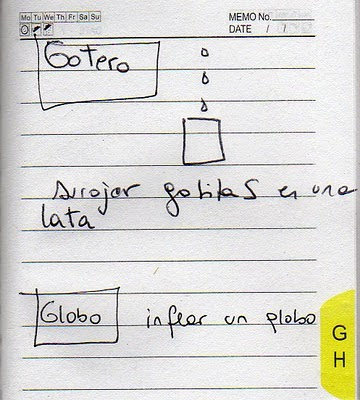 Mo Tu We Th Fr Sa Su
MEMO No.
DATE / /
Gotero
arrojar gotitas en una
lata
Globo inflar un globo
G
H